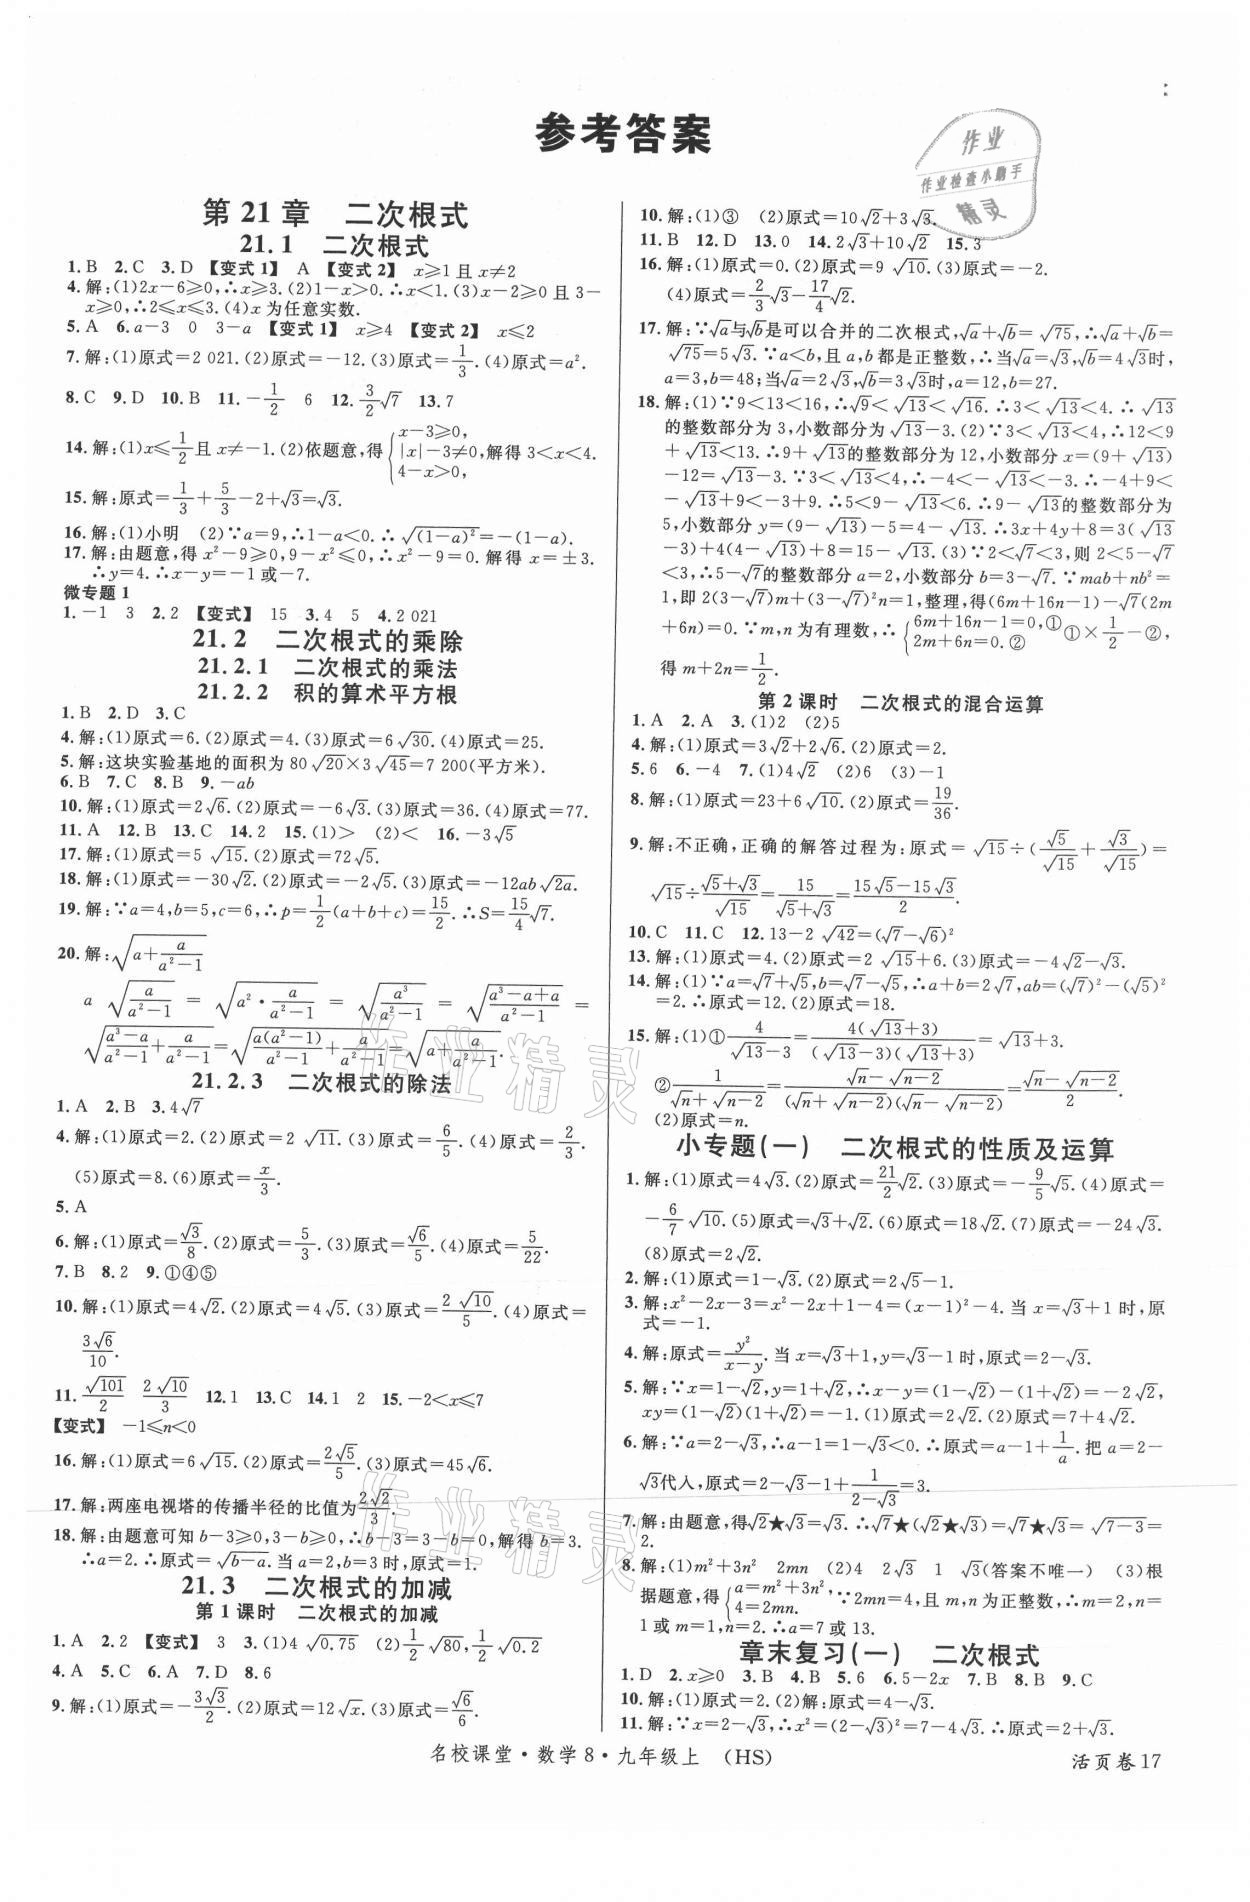 参考答案
作业
作业检查小助手
精灵
第 21 章 二次根式
21.1 二次根式
1.B 2.C 3.D 【变式1】 A 【变式2】 x≥1且x≠2
4.解:(1)2x-6≥0,∴x≥3.(2)1-x>0.∴x<1.(3)x-2≥0且3-
x≥0,∴2≤x≤3.(4)x为任意实数.
5.A 6.a-3 0 3-a 【变式1】 x≥4 【变式2】 x≤2
7.解:(1)原式=2 021.(2)原式=-12.(3)原式=1/3.(4)原式=a².
8.C 9.D 10.B 11.-1/2 6 12.3/2√7 13.7
14.解:(1)x≤1/2且x≠-1.(2)依题意,得{x-3≥0, |x|-3≠0, 4-x>0, 解得3<x<4.
15.解:原式=1/3+5/3-2+√3=√3.
16.解:(1)小明 (2)∵a=9,∴1-a<0.∴√(1-a)²=-(1-a).
17.解:由题意,得x²-9≥0,9-x²≤0,∴x²-9=0.解得x=±3.
∴y=4.∴x-y=-1或-7.
微专题1
1.-1 3 2.2 【变式】 15 3.4 5 4.2 021
21.2 二次根式的乘除
21.2.1 二次根式的乘法
21.2.2 积的算术平方根
1.B 2.D 3.C
4.解:(1)原式=6.(2)原式=4.(3)原式=6√30.(4)原式=25.
5.解:这块实验基地的面积为80√20×3√45=7 200(平方米).
6.B 7.C 8.B 9.-ab
10.解:(1)原式=2√6.(2)原式=-6√3.(3)原式=36.(4)原式=77.
11.A 12.B 13.C 14.2 15.(1)> (2)< 16.-3√5
17.解:(1)原式=5√15.(2)原式=72√5.
18.解:(1)原式=-30√2.(2)原式=-2√5.(3)原式=-12ab√2a.
19.解:∵a=4,b=5,c=6,∴p=1/2(a+b+c)=15/2.∴S=15/4√7.
20.解:√(a+a/(a²-1))
a√(a/(a²-1)) = √(a²·a/(a²-1)) = √(a³/(a²-1)) = √((a³-a+a)/(a²-1)) =
√((a³-a)/(a²-1)+a/(a²-1))=√(a(a²-1)/(a²-1)+a/(a²-1))=√(a+a/(a²-1)).
21.2.3 二次根式的除法
1.A 2.B 3.4√7
4.解:(1)原式=2.(2)原式=2√11.(3)原式=6/5.(4)原式=2/3.
(5)原式=8.(6)原式=x/3.
5.A
6.解:(1)原式=√3/8.(2)原式=5/3.(3)原式=√6/5.(4)原式=5/22.
7.B 8.2 9.①④⑤
10.解:(1)原式=4√2.(2)原式=4√5.(3)原式=2√10/5.(4)原式=
3√6/10.
11.√101/2 2√10/3 12.1 13.C 14.1 2 15.-2<x≤7
【变式】 -1≤n<0
16.解:(1)原式=6√15.(2)原式=2√5/5.(3)原式=45√6.
17.解:两座电视塔的传播半径的比值为2√2/3.
18.解:由题意可知b-3≥0,3-b≥0,∴b-3=3-b=0,解得b=3.
∴a=2.∴原式=√b-a.当a=2,b=3时,原式=1.
21.3 二次根式的加减
第1课时 二次根式的加减
1.A 2.2 【变式】 3 3.(1)4√0.75 (2)1/2√80,1/2√0.2
4.A 5.C 6.A 7.D 8.6
9.解:(1)原式=-3√3/2.(2)原式=12√x.(3)原式=√6/6.
10.解:(1)③ (2)原式=10√2+3√3.
11.B 12.D 13.0 14.2√3+10√2 15.3
16.解:(1)原式=0.(2)原式=9√10.(3)原式=-2.
(4)原式=2/3√3-17/4√2.
17.解:∵√a与√b是可以合并的二次根式,√a+√b=√75,∴√a+√b=
√75=5√3.∵a<b,且a,b都是正整数,∴当√a=√3,√b=4√3时,
a=3,b=48;当√a=2√3,√b=3√3时,a=12,b=27.
18.解:(1)∵9<13<16,∴√9<√13<√16.∴3<√13<4.∴√13
的整数部分为3,小数部分为√13-3.(2)∵3<√13<4,∴12<9
+√13<13.∴9+√13的整数部分为12,小数部分x=(9+√13)
-12=√13-3.∵3<√13<4,∴-4<-√13<-3.∴-4+9<
-√13+9<-3+9.∴5<9-√13<6.∴9-√13的整数部分为
5,小数部分y=(9-√13)-5=4-√13.∴3x+4y+8=3(√13
-3)+4(4-√13)+8=15-√13.(3)∵2<√7<3,则2<5-√7
<3,∴5-√7的整数部分a=2,小数部分b=3-√7.∵mab+nb²=
1,即2(3-√7)m+(3-√7)²n=1,整理,得(6m+16n-1)-√7(2m
+6n)=0.∵m,n为有理数,∴{6m+16n-1=0,① 2m+6n=0.② ①×1/2-②,
得m+2n=1/2.
第2课时 二次根式的混合运算
1.A 2.A 3.(1)2 (2)5
4.解:(1)原式=3√2+2√6.(2)原式=2.
5.6 6.-4 7.(1)4√2 (2)6 (3)-1
8.解:(1)原式=23+6√10.(2)原式=19/36.
9.解:不正确,正确的解答过程为:原式=√15÷(√5/√15+√3/√15)=
√15÷(√5+√3)/√15=15/(√5+√3)=(15√5-15√3)/2.
10.C 11.C 12.13-2√42=(√7-√6)²
13.解:(1)原式=4.(2)原式=2√15+6.(3)原式=-4√2-√3.
14.解:(1)∵a=√7+√5,b=√7-√5,∴a+b=2√7,ab=(√7)²-(√5)²
=2.∴原式=12.(2)原式=18.
15.解:(1)①4/(√13-3)=4(√13+3)/((√13-3)(√13+3))=√13+3.
②1/(√n+√n-2)=(√n-√n-2)/((√n+√n-2)(√n-√n-2))=(√n-√n-2)/2.
(2)原式=n.
小专题(一) 二次根式的性质及运算
1.解:(1)原式=4√3.(2)原式=21/2√2.(3)原式=-9/5√5.(4)原式=
-6/7√10.(5)原式=√3+√2.(6)原式=18√2.(7)原式=-24√3.
(8)原式=2√2.
2.解:(1)原式=1-√3.(2)原式=2√5-1.
3.解:x²-2x-3=x²-2x+1-4=(x-1)²-4.当x=√3+1时,原
式=-1.
4.解:原式=y²/(x-y).当x=√3+1,y=√3-1时,原式=2-√3.
5.解:∵x=1-√2,y=1+√2,∴x-y=(1-√2)-(1+√2)=-2√2,
xy=(1-√2)(1+√2)=-1.(1)原式=2√2.(2)原式=7+4√2.
6.解:∵a=2-√3,∴a-1=1-√3<0.∴原式=a-1+1/a.把a=2-
√3代入,原式=2-√3-1+1/(2-√3)=3.
7.解:由题意,得√2★√3=√3.∴√7★(√2★√3)=√7★√3=√7-3=
2.
8.解:(1)m²+3n² 2mn (2)4 2√3 1 √3(答案不唯一) (3)根
据题意,得{a=m²+3n², 4=2mn. ∵2mn=4,且m,n为正整数,∴m=2,n=
1或m=1,n=2.∴a=7或13.
章末复习(一) 二次根式
1.D 2.x≥0 3.B 4.B 5.6 6.5-2x 7.B 8.B 9.C
10.解:(1)原式=2.(2)解:原式=4-√3.
11.解:∵x=2-√3,∴x²=(2-√3)²=7-4√3.∴原式=2+√3.
作业精灵
作业精灵
名校课堂·数学8·九年级上 (HS)
活页卷17